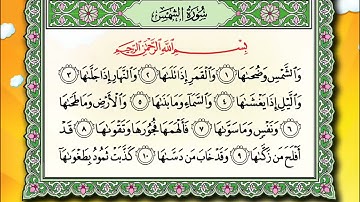 سُورَةُ الشَّمْسِ
بِسْمِ اللَّهِ الرَّحْمَٰنِ الرَّحِيمِ
وَالشَّمْسِ وَضُحَىٰهَا ١ وَالْقَمَرِ إِذَا تَلَىٰهَا ٢ وَالنَّهَارِ إِذَا جَلَّىٰهَا ٣
وَالَّيْلِ إِذَا يَغْشَىٰهَا ٤ وَالسَّمَاءِ وَمَا بَنَىٰهَا ٥ وَالْأَرْضِ وَمَا طَحَىٰهَا
٦ وَنَفْسٍ وَمَا سَوَّىٰهَا ٧ فَأَلْهَمَهَا فُجُورَهَا وَتَقْوَىٰهَا ٨ قَدْ
أَفْلَحَ مَن زَكَّىٰهَا ٩ وَقَدْ خَابَ مَن دَسَّىٰهَا ١٠ كَذَّبَتْ ثَمُودُ بِطَغْوَىٰهَا